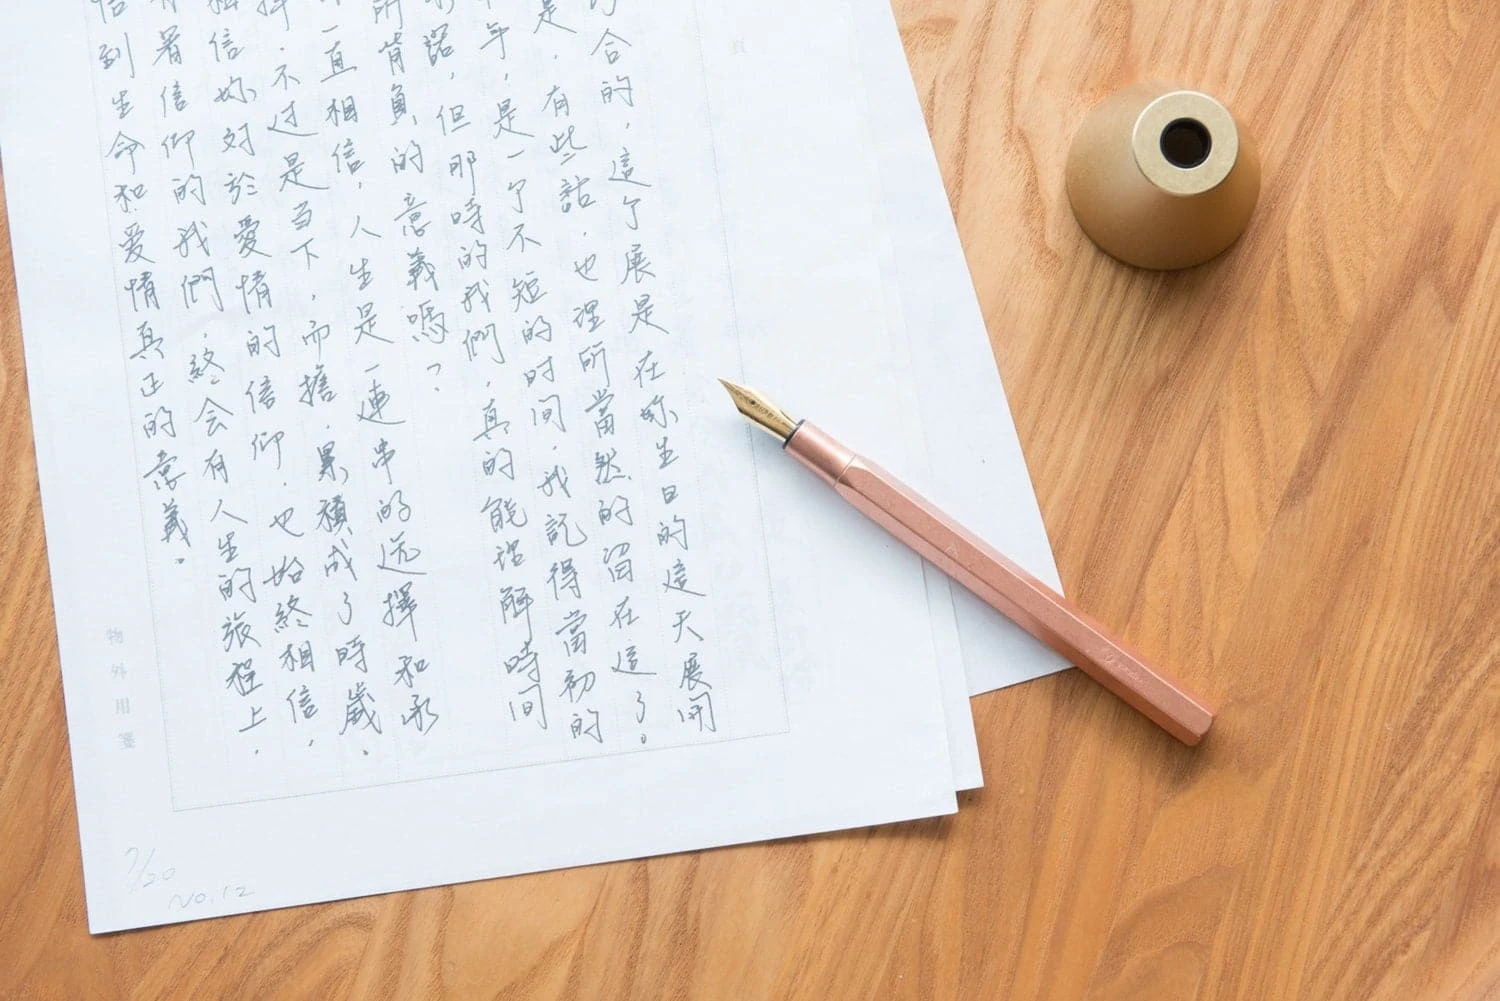 合的，這个展是在妳生日的這天展開
是，有些話，也理所當然的留在這了。
年，是一个不短的时间，我記得當初的
諾，但那時的我們，真的能理解時間
所背負的意義嗎？
一直相信，人生是一連串的选擇和承
擇，不过是当下，而擔，累積成了時歲、
相信妳对於愛情的信仰，也始終相信，
有着信仰的我們，終会有人生的旅程上，
到生命和爱情真正的意義。
物外用箋
7/20
NO.12